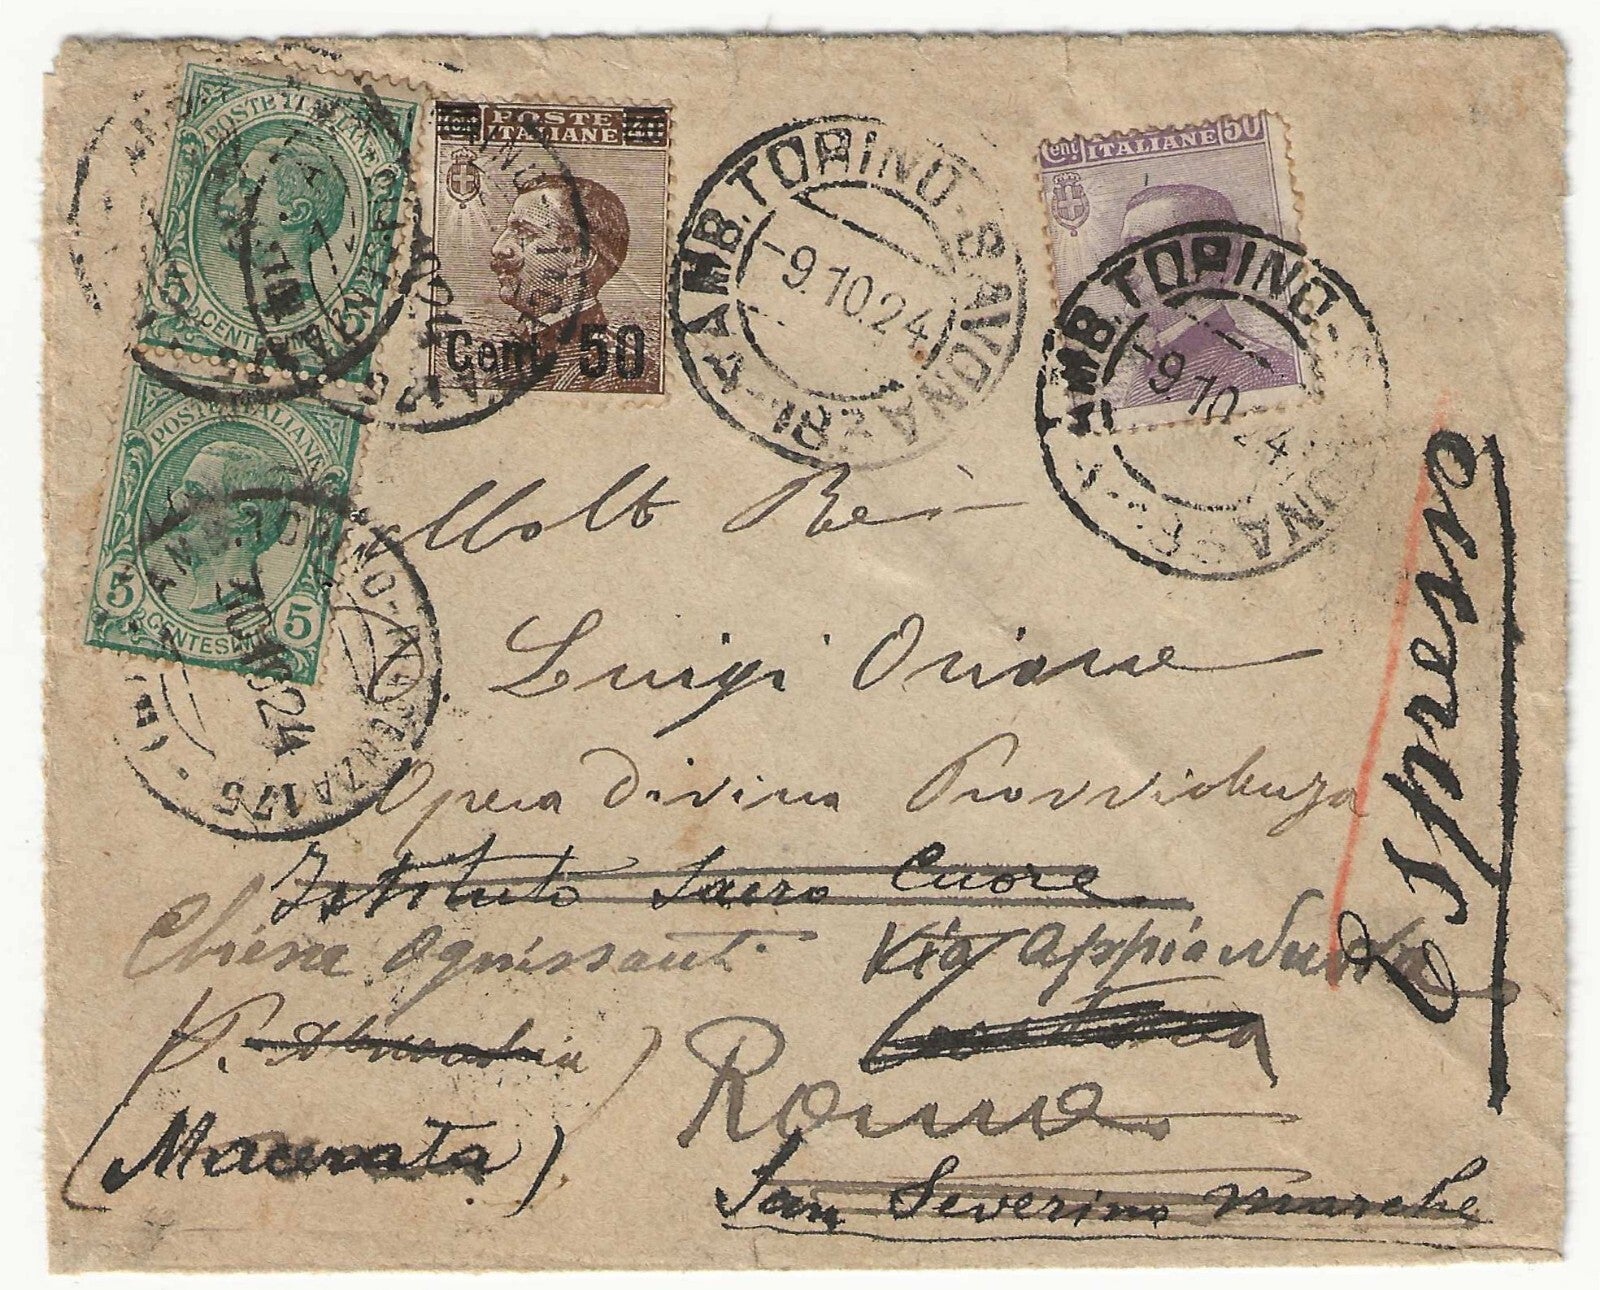 POSTE ITALIANE
5 CENTESIMI 5
POSTE ITALIANE
5 CENTESIMI 5
POSTE ITALIANE 40
Cent. 50
AMB. TORINO-SAVONA
-9.10.24
Cent ITALIANE 50
AMB. TORINO-SAVONA
-9.10.24
AMB. TORINO-PIACENZA 175
10 1924
Espresso
Molto Rev
Luigi Orione
Opera Divina Provvidenza
Istituto Sacro Cuore
Chiesa Ognissanti Via Appia Nuova
Roma
(Macerata)
San Severino Marche